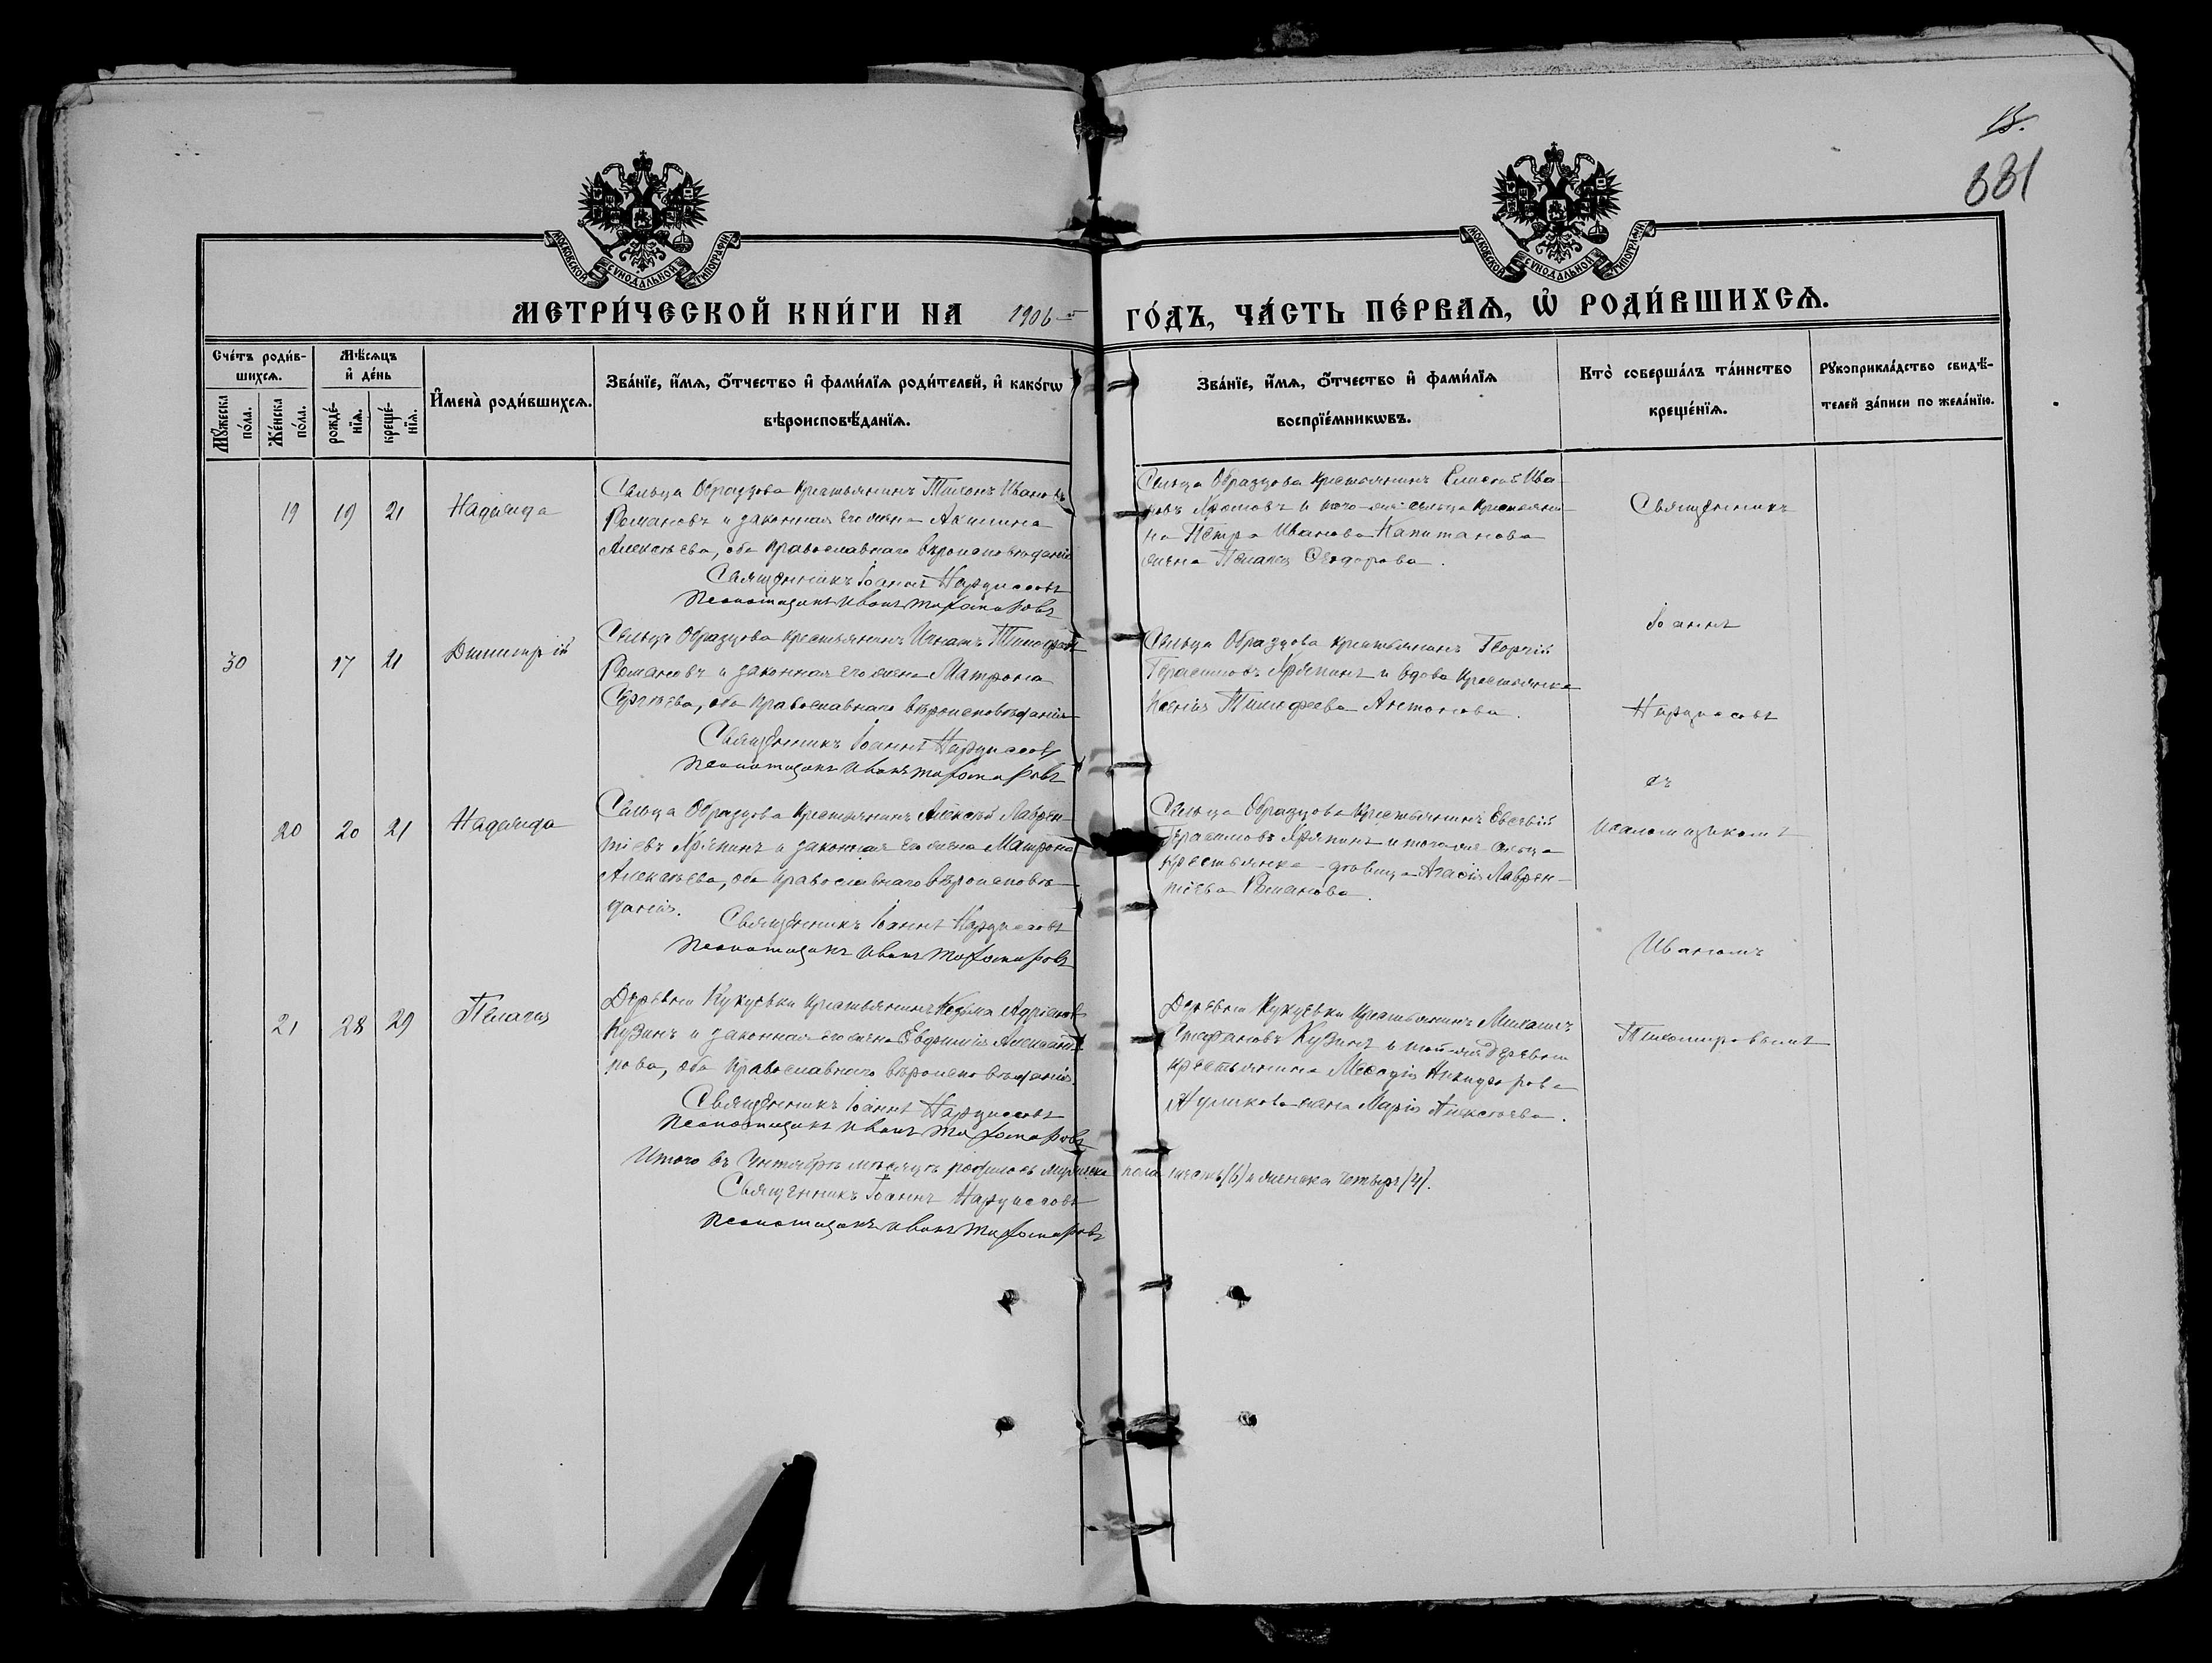 15.
881
МОСКОВСКОЙ СѴНОДАЛЬНОЙ ТИПОГРАФІИ
МОСКОВСКОЙ СѴНОДАЛЬНОЙ ТИПОГРАФІИ
МЕТРИ́ЧЕСКОЙ КНИ́ГИ НА 1906 ГО́ДЪ, ЧА́СТЬ ПЕ́РВАѦ, Ѽ РОДИ́ВШИХСѦ.
Сче́тъ роди́в-
шихсѧ.
Мѣ́сѧцъ
и҆ де́нь
Мꙋ́жеска
по́ла.
Же́нска
по́ла.
рожде́-
нїѧ.
креще́-
нїѧ.
И҆мена̀ роди́вшихсѧ.
Зва́нїе, и҆́мѧ, ѻ҆́тчество и҆ фами́лїѧ роди́телей, и҆ како́гѡ
вѣроисповѣ́данїѧ.
Зва́нїе, и҆́мѧ, ѻ҆́тчество и҆ фами́лїѧ
воспрїе́мникѡвъ.
Кто̀ соверша́лъ та́инство
креще́нїѧ.
Рꙋкоприкла́дство свидѣ́-
телей за́писи по жела́нїю.
19 19 21 Надежда
Сельца Образцова крестьянинъ Тихонъ Ивановъ
Романовъ и законная его жена Акилина
Алексѣева, оба православнаго вѣроисповѣданія
Священникъ Іоаннъ Нарциссовъ
Псаломщикъ Иванъ Тихомировъ
Сельца Образцова крестьянинъ Елисей Ива-
новъ и того-же сельца крестьяни-
на Петра Иванова Капитанова
жена Пелагія Ѳеодорова.
30 17 21 Димитрій
Сельца Образцова крестьянинъ Игнатъ Тимофеевъ
Романовъ и законная его жена Матрона
Сергѣева, оба православнаго вѣроисповѣданія
Священникъ Іоаннъ Нарциссовъ
Псаломщикъ Иванъ Тихомировъ
Сельца Образцова крестьянинъ Георгій
Герасимовъ Хряпинъ и вдова крестьянка
Ксенія Тимофеева Антонова.
20 20 21 Надежда
Сельца Образцова крестьянинъ Алексѣй Лаврен-
тіевъ Хряпинъ и законная его жена Матрона
Алексѣева, оба православнаго вѣроисповѣ-
данія.
Священникъ Іоаннъ Нарциссовъ
Псаломщикъ Иванъ Тихомировъ
Сельца Образцова крестьянинъ Евсевій
Герасимовъ Хряпинъ и того-же сельца
крестьянка - дѣвица Агафія Лаврен-
тіева Романова.
21 28 29 Пелагія
Деревни Кукуевки крестьянинъ Козьма Адріановъ
Кузинъ и законная его жена Евфимія Алексан-
рова, оба православнаго вѣроисповѣданія.
Священникъ Іоаннъ Нарциссовъ
Псаломщикъ Иванъ Тихомировъ
Деревни Кукуевки крестьянинъ Михаилъ
Стефановъ Кузинъ и той-же деревни
крестьянина Меѳодія Никифорова
жена Марія Алексѣева.
Священникъ
Іоаннъ
Нарциссовъ
съ
псаломщикомъ
Иваномъ
Тихомировымъ
Итого въ Сентябрѣ мѣсяцѣ родилось мужеска пола шесть (6) и женска четыре (4).
Священникъ Іоаннъ Нарциссовъ
Псаломщикъ Иванъ Тихомировъ